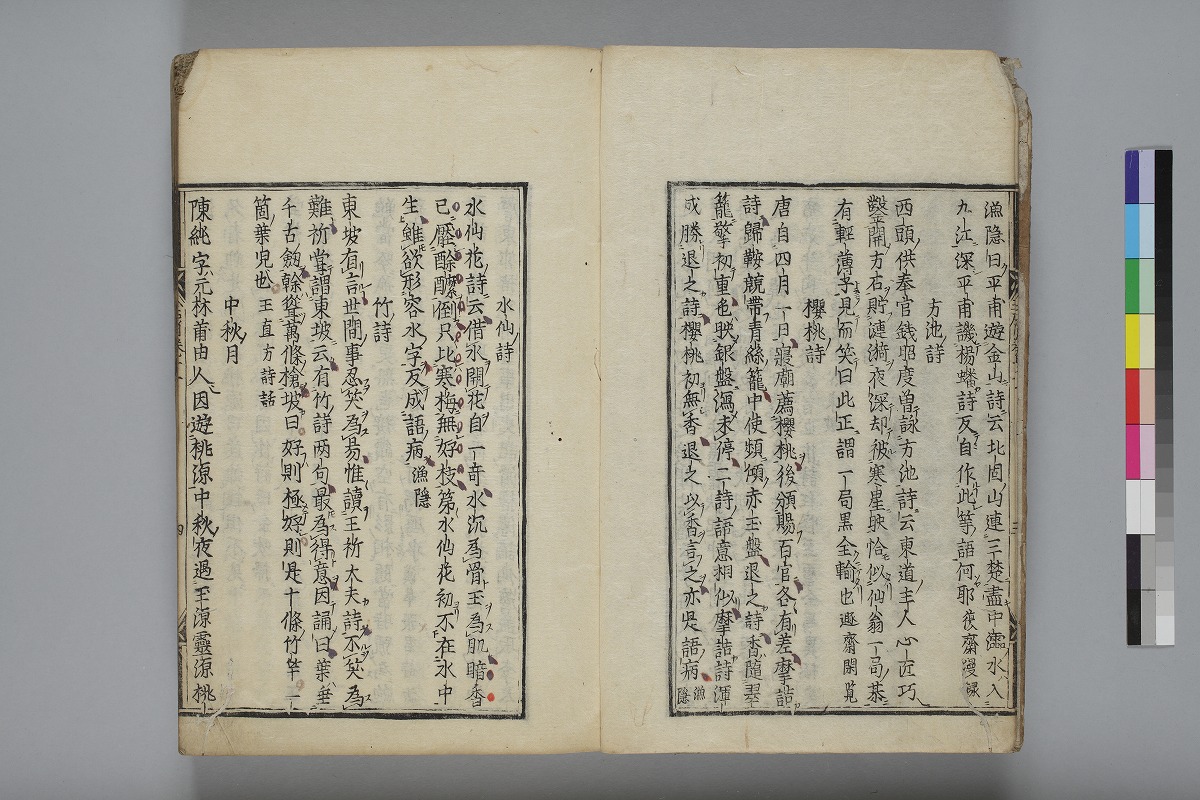 漁隱曰平甫遊金山詩云北固山連三楚盡中濡水入
九江深平甫譏楊蟠詩反自作此等語何耶復齋漫録
方池詩
西頭供奉官錢昭度曽詠方池詩云東道主人心匠巧
鑿開方石貯漣漪夜深却被寒星映恰似仙翁一局棊
有輕薄子見而笑曰此正謂一局黒全輸也遯齋閑覧
櫻桃詩
唐自四月一日寢廟薦櫻桃後頒賜百官各有差摩詰
詩歸鞍競帶青絲籠中使頻傾赤玉盤退之詩香隨翠
籠擎初重色映銀盤瀉未停二詩語意相似摩詰詩渾
成勝退之詩櫻桃初無香退之以香言之亦是語病漁隱
水仙詩
水仙花詩云借水開花自一奇水沉為骨玉為肌暗香
已壓酴醾倒只比寒梅無好枝第水仙花初不在水中
生雖欲形容水字反成語病漁隱
竹詩
東坡有言世間事忍笑為易惟讀王祈大夫詩不笑為
難祈嘗謂東坡云有竹詩兩句最為得意因誦曰葉垂
千古劔榦聳萬條槍坡曰好則極好則是十條竹竿一
箇葉児也王直方詩話
中秋月
陳純字元林莆由人因遊桃源中秋夜過玉源靈源桃